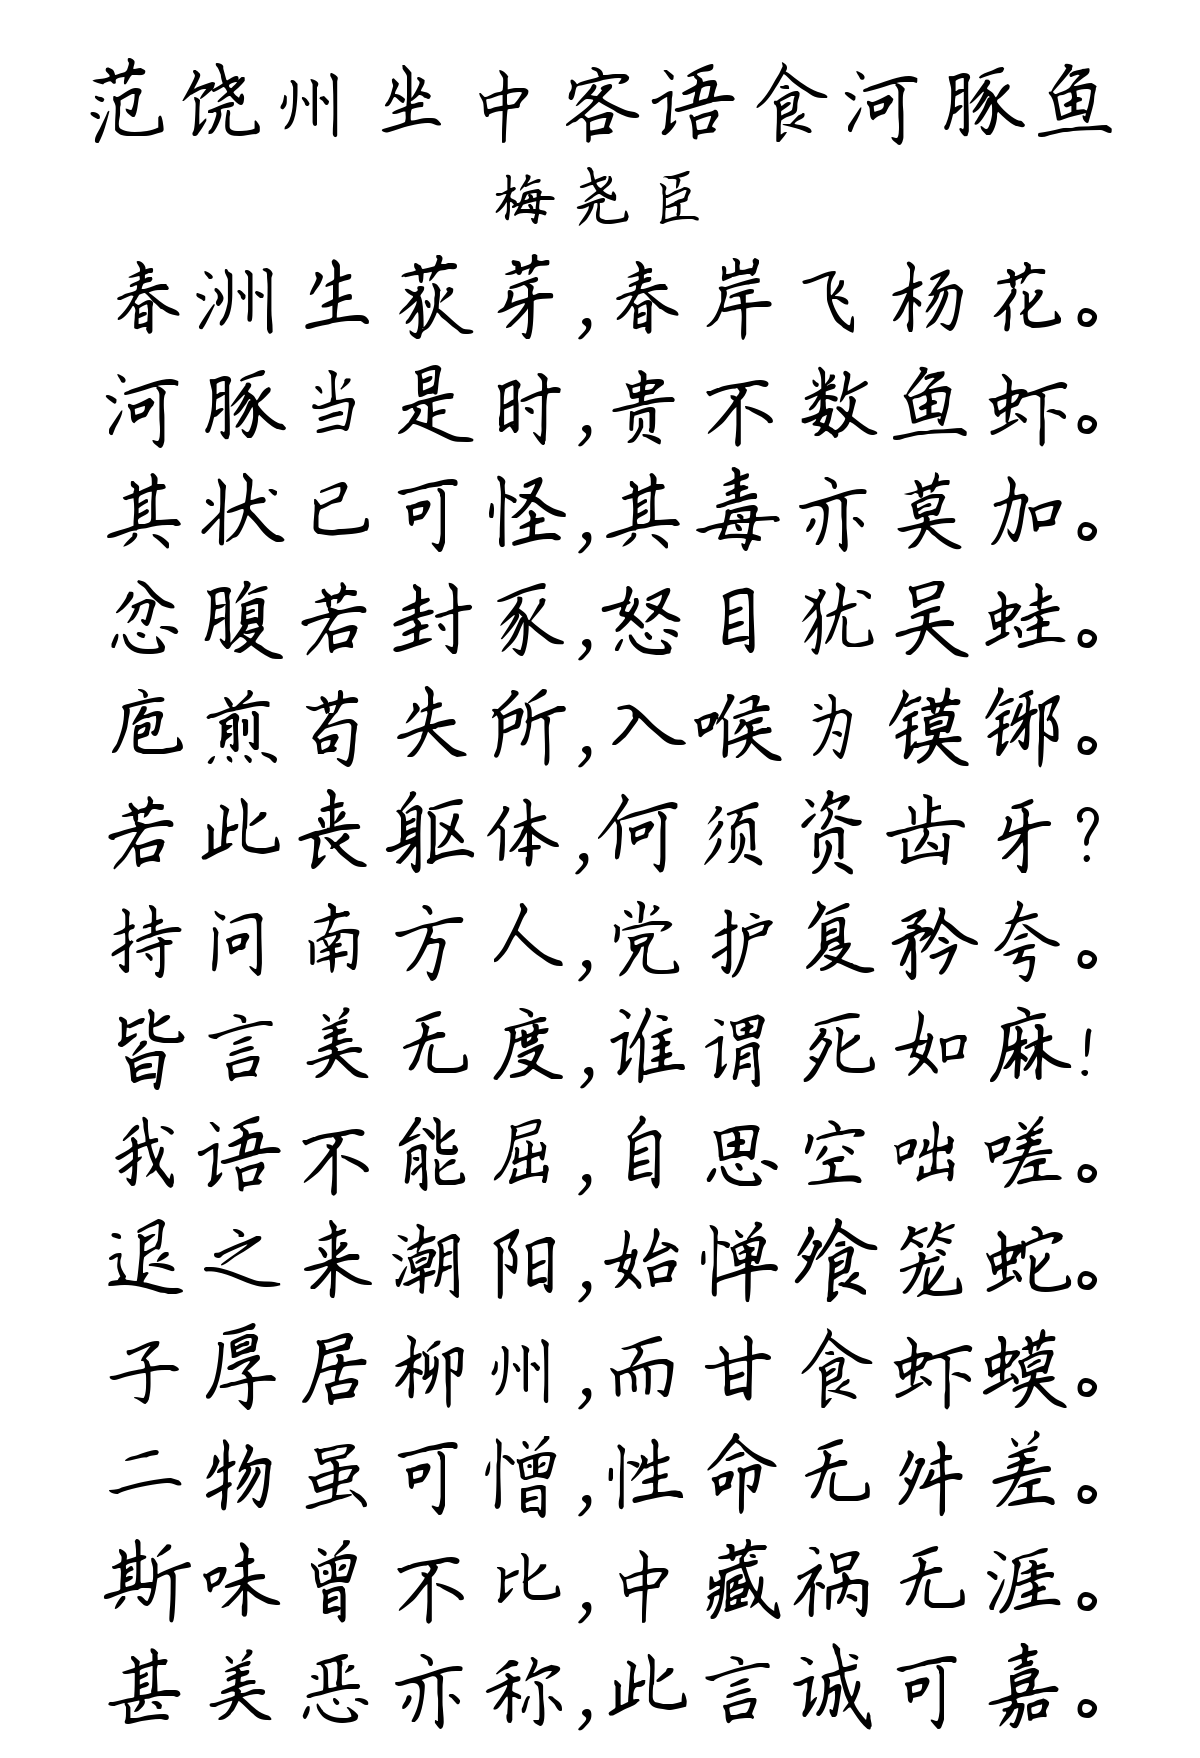 范饶州坐中客语食河豚鱼
梅尧臣
春洲生荻芽,春岸飞杨花。
河豚当是时,贵不数鱼虾。
其状已可怪,其毒亦莫加。
忿腹若封豕,怒目犹吴蛙。
庖煎苟失所,入喉为镆铘。
若此丧躯体,何须资齿牙?
持问南方人,党护复矜夸。
皆言美无度,谁谓死如麻!
我语不能屈,自思空咄嗟。
退之来潮阳,始惮飧笼蛇。
子厚居柳州,而甘食虾蟆。
二物虽可憎,性命无舛差。
斯味曾不比,中藏祸无涯。
甚美恶亦称,此言诚可嘉。